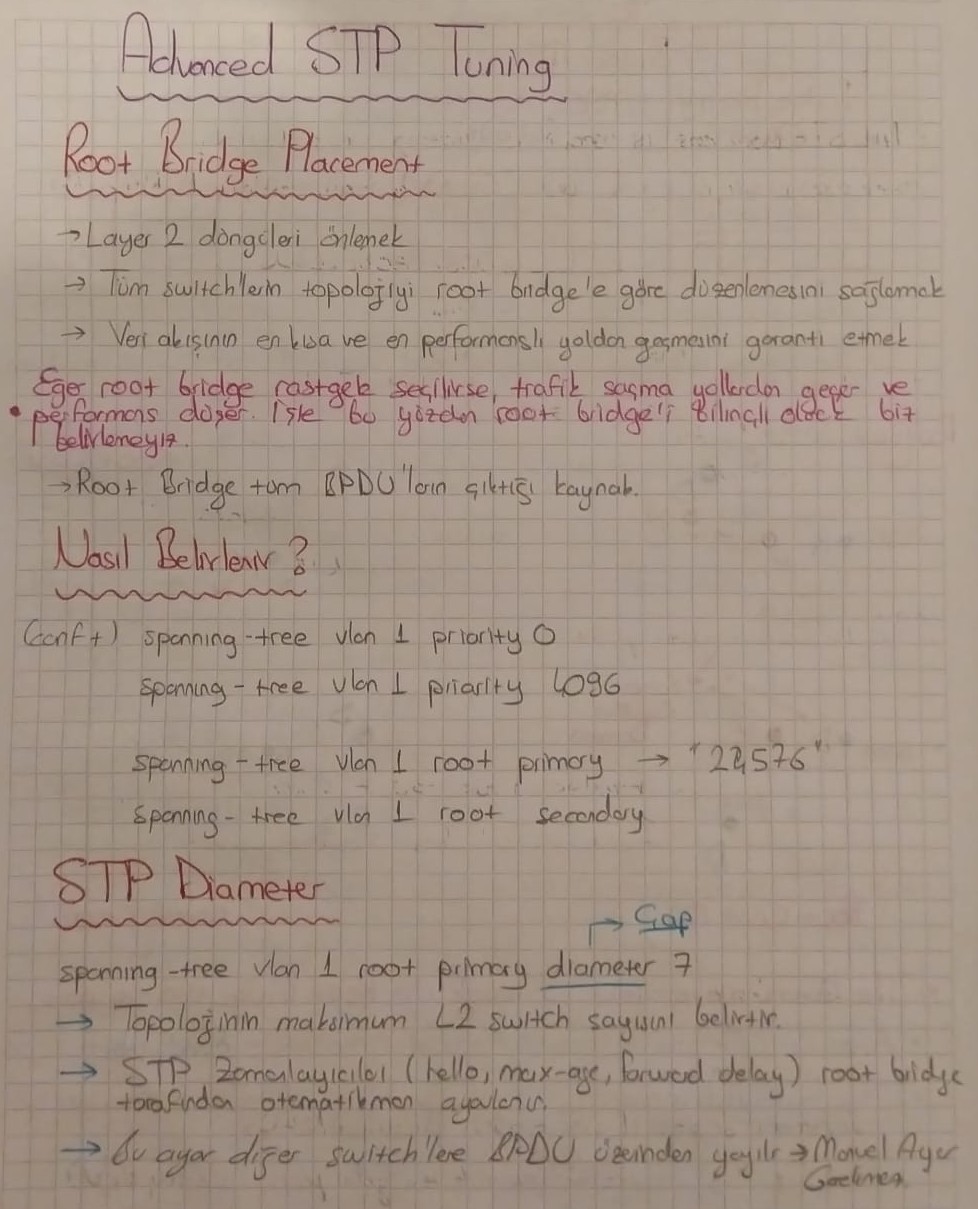 Advanced STP Tuning
Root Bridge Placement
→ Layer 2 döngüleri önlemek
→ Tüm switch'lerin topolojiyi root bridge'e göre düzenlemesini sağlamak
→ Veri akışının en kısa ve en performanslı yoldan geçmesini garanti etmek
Eğer root bridge rastgele seçilirse, trafik saçma yollardan geçer ve
• performans düşer. İşte bu yüzden root bridge'i bilinçli olarak biz
belirlemeyiz.
→ Root Bridge tüm BPDU'ların çıktığı kaynak.
Nasıl Belirlenir?
(conf t) spanning-tree vlan 1 priority 0
spanning-tree vlan 1 priority 4096
spanning-tree vlan 1 root primary → "24576"
spanning-tree vlan 1 root secondary
STP Diameter
→ Çap
spanning-tree vlan 1 root primary diameter 7
→ Topolojinin maksimum L2 switch sayısını belirtir.
→ STP Zamanlayıcıları (hello, max-age, forward delay) root bridge
tarafından otomatikman ayarlanır.
→ Bu ayar diğer switch'lere BPDU üzerinden yayılır → Manuel Ayar
Gerekmez